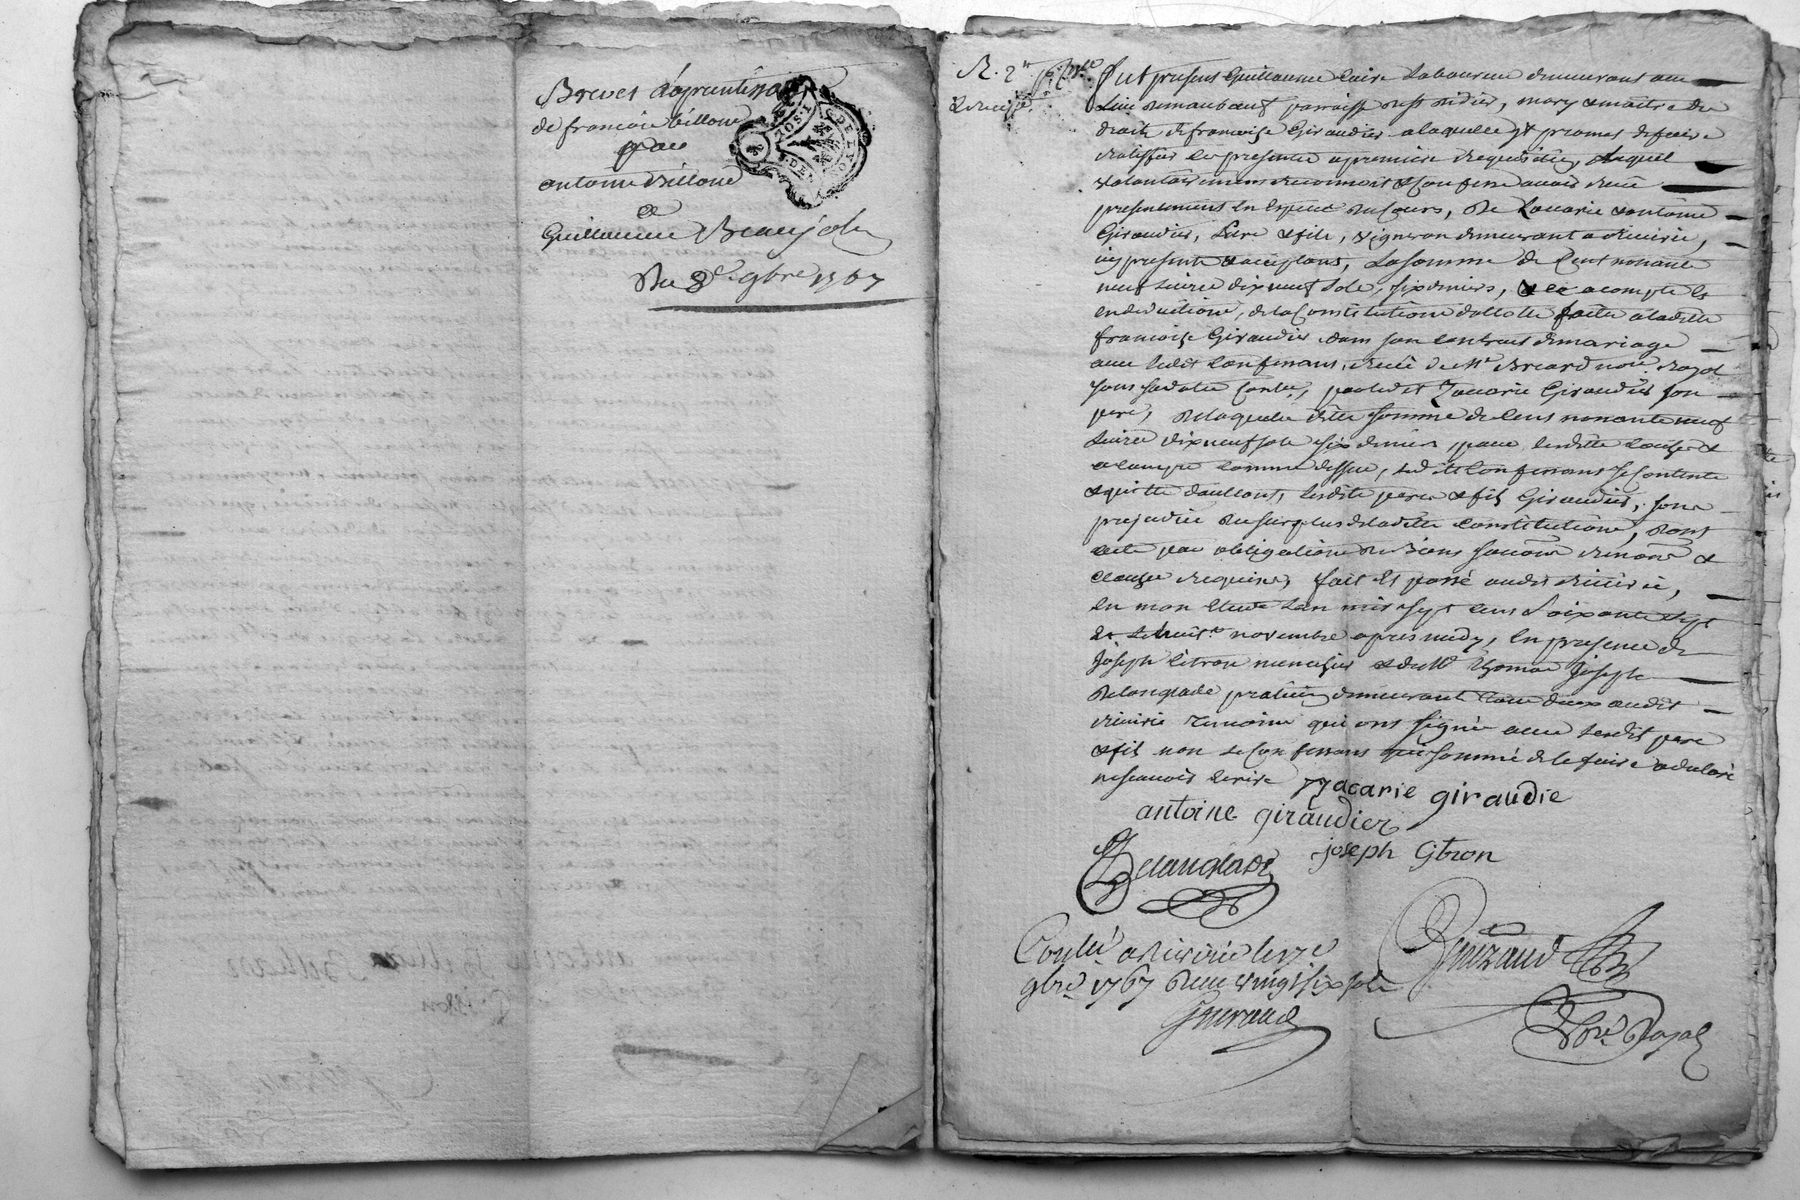 Brevet d'aprentissage
de francois billon
par
antoine Billon
a
Guillaume Beaujolin
Du 8e 9bre 1767
Fut present Guillaume Caire Laboureur demeurant au
Lieu de maubœuf parroisse de st didier, mary & maitre des
droits de francoise Giraudier a laquelle il promet de faire
ratiffier les presentes a premiere requisition, Lequel
volontairement reconnoit & confesse avoir receu
presentement en especes de cours, de Zacarie & antoine
Giraudier, Pere & fils, vigneron demeurant a Riverie,
icy presents & acceptans, La somme de Cent nonante
neuf livres dix neuf sols, six deniers, & ce a compte &
en deduction, de la Constitution dotalle faitte a laditte
francoise Giraudier dans son contract de mariage
avec ledit Confessant, receu de Me Brard nore Royal
sous sa datte Controllé, par ledit Zacarie Giraudier son
pere, de laquelle ditte somme de Cent nonante neuf
Livres dix neuf sols six deniers pour lesdittes causes &
a compte comme dessus, ledit Confessant se Contente
& quitte d'autant, lesdits pere & fils Giraudier, sans
prejudice du surplus de laditte Constitution, dont
acte par obligation de Biens &
clauses requises, fait et passé audit Riverie,
En mon Etude L'an mil sept cent Soixante sept
& Le huit novembre apres midy, En presence de
Joseph Gitron menuisier & de Me Thomas Joseph
Delanglade praticien demeurant tous deux audit
Riverie Temoins qui ont signé avec lesdits pere
& fils non le Confessant qui sommé de le faire a declaré
ne scavoir Ecrire zacarie giraudie
antoine giraudier
joseph Gitron
Delanglade
Conlé a Riverie le 17e
9bre 1767 Receu vingt six sols
Gouraud
Gouraud
Nore Royal